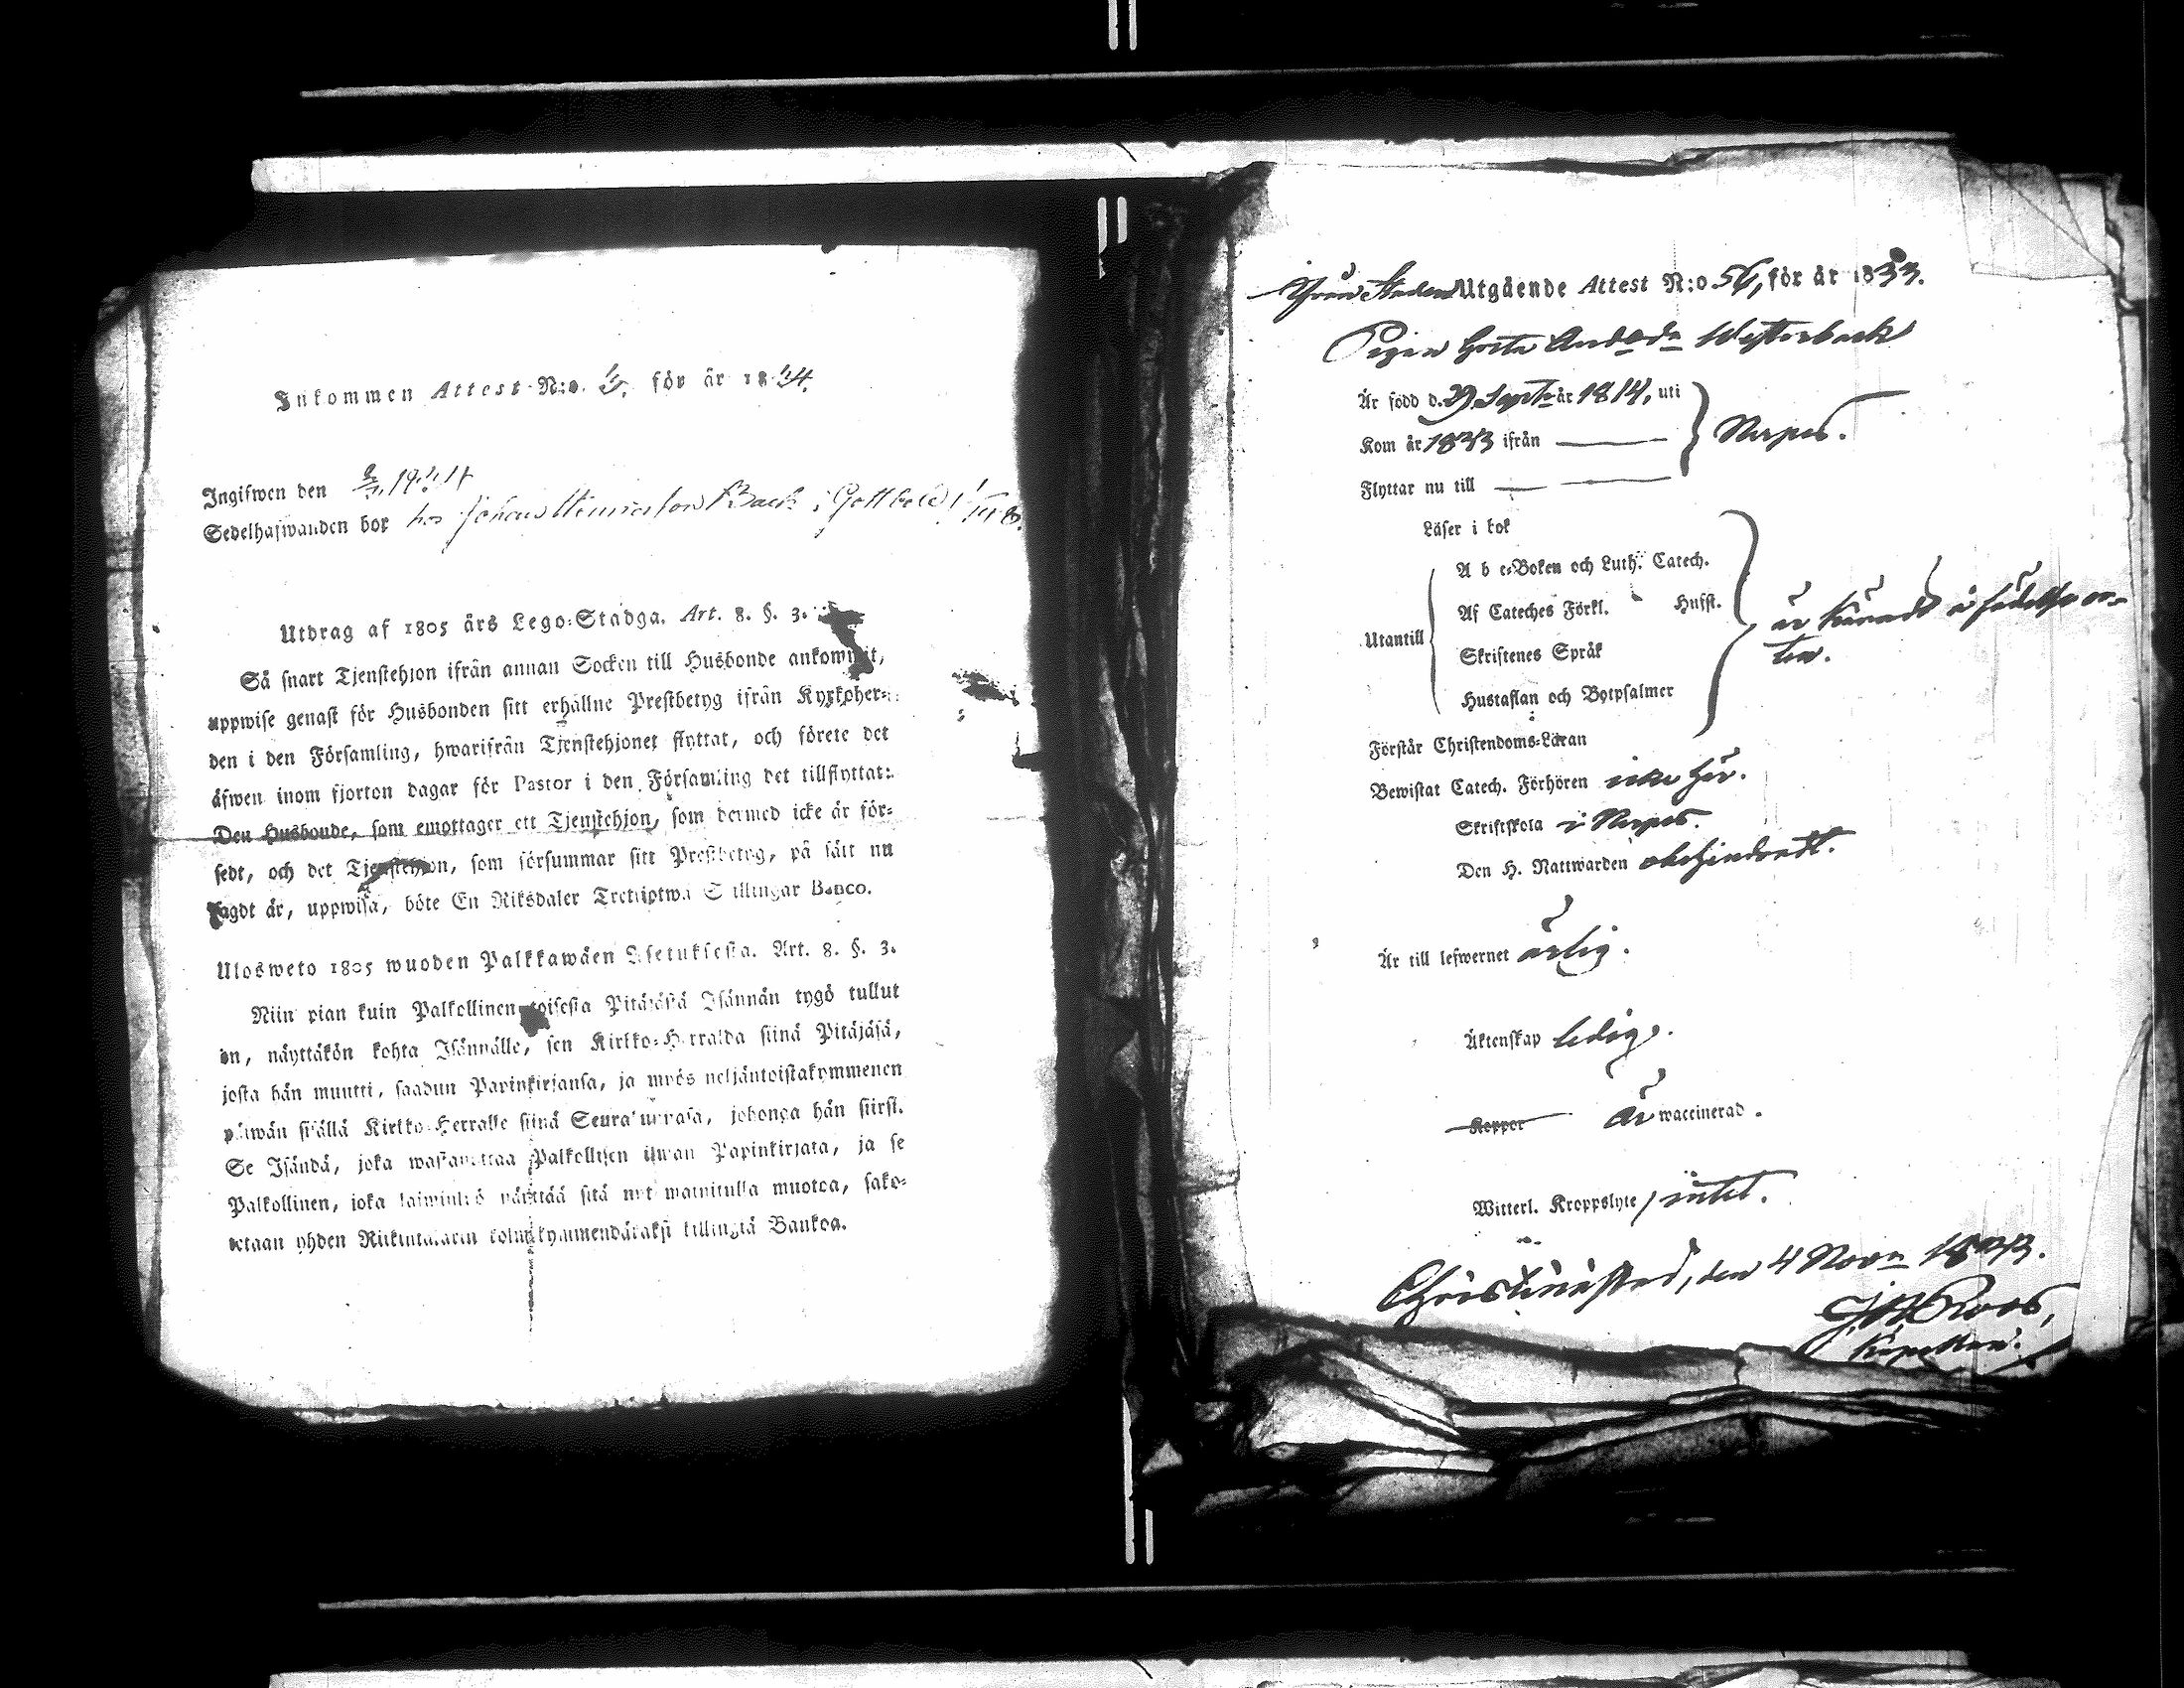 Inkommen Attest N:o. för år 18
Ingifwen den
Sedelhafwanden bor hos Johan Henricsson Back i Gottböle
Utdrag af 1805 års Lego-Stadga. Art. 8. §. 3.
Så snart Tjenstehjon ifrån annan Socken till Husbonde ankommit,
uppwise genast för Husbonden sitt erhållne Prestbetyg ifrån Kyrkoher-
den i den Församling, hwarifrån Tjenstehjonet flyttat, och förete det
äfwen inom fjorton dagar för Pastor i den Församling det tillflyttat:
Den Husbonde, som emottager ett Tjenstehjon, som dermed icke är för-
sedt, och det Tjenstehjon, som försummar sitt Prestbetyg, på sätt nu
sagdt är, uppwisa, böte En Riksdaler Trettiotwå Skillingar Banco.
Ulosweto 1805 wuoden Palkkawäen Asetuksesta. Art. 8. §. 3.
Niin pian kuin Palkollinen toisesta Pitäjästä Isännän tygö tullut
on, näyttäkön kohta Isännälle, sen Kirkko-Herralda siinä Pitäjäsä,
josta hän muutti, saadun Papinkirjansa, ja myös neljäntoistakymmenen
päiwän sisällä Kirkko-Herralle siinä Seurakunnasa, johonga hän siirsi.
Se Isändä, joka wastanottaa Palkollisen ilman Papinkirjata, ja se
Palkollinen, joka laiminlyö näyttää sitä nyt mainitulla muotoa, sako-
tetaan yhden Riikintalarin kolmekymmendäkaksi killingiä Bankoa.
Från Staden Utgående Attest N:o 56, för år 1833.
Pigan Greta Andsdr Westerback
Är född d. 29 Septr år 1814, uti
Kom år 1833 ifrån Nerpes.
Flyttar nu till
Läser i bok
A b c-Boken och Luth. Catech.
Af Cateches Förkl. Husst.
Utantill är känndt i födelse or-
Skriftenes Språk ten.
Hustaflan och Botpsalmer
Förstår Christendoms-Läran
Bewistat Catech. Förhören icke här.
Skriftskola i Nerpes.
Den H. Nattwarden obehindradt.
Är till lefwernet ärlig.
Äktenskap ledig.
Koppor är waccinerad.
Witterl. Kroppslyte, intet.
Christinestad, den 4 Novr 1833.
Roos,
Kapellan.